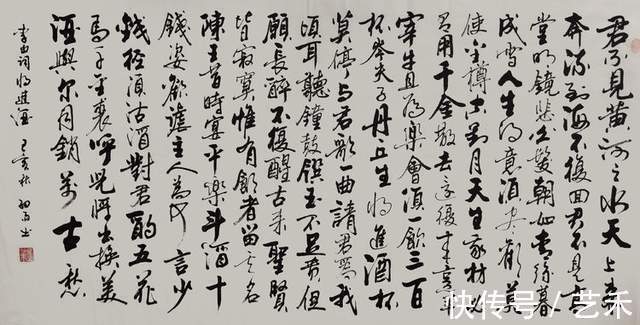 君不見黄河之水天上来
奔流到海不復回君不見高
堂明鏡悲白髮朝如青絲暮
成雪人生得意須盡歡莫
使金樽空對月天生我材必
有用千金散去還復来烹羊
宰牛且為樂會須一飲三百
杯岑夫子丹丘生將進酒杯
莫停與君歌一曲請君為我
傾耳聽鐘鼓饌玉不足貴但
願長醉不復醒古来聖賢
皆寂寞惟有飲者留其名
陳王昔時宴平樂斗酒十
錢恣歡謔主人為何言少
錢徑須沽酒對君酌五花
馬千金裘呼兒將出換美
酒與爾同銷萬古愁
李白詞將進酒 己亥秋 书
快传号/艺禾